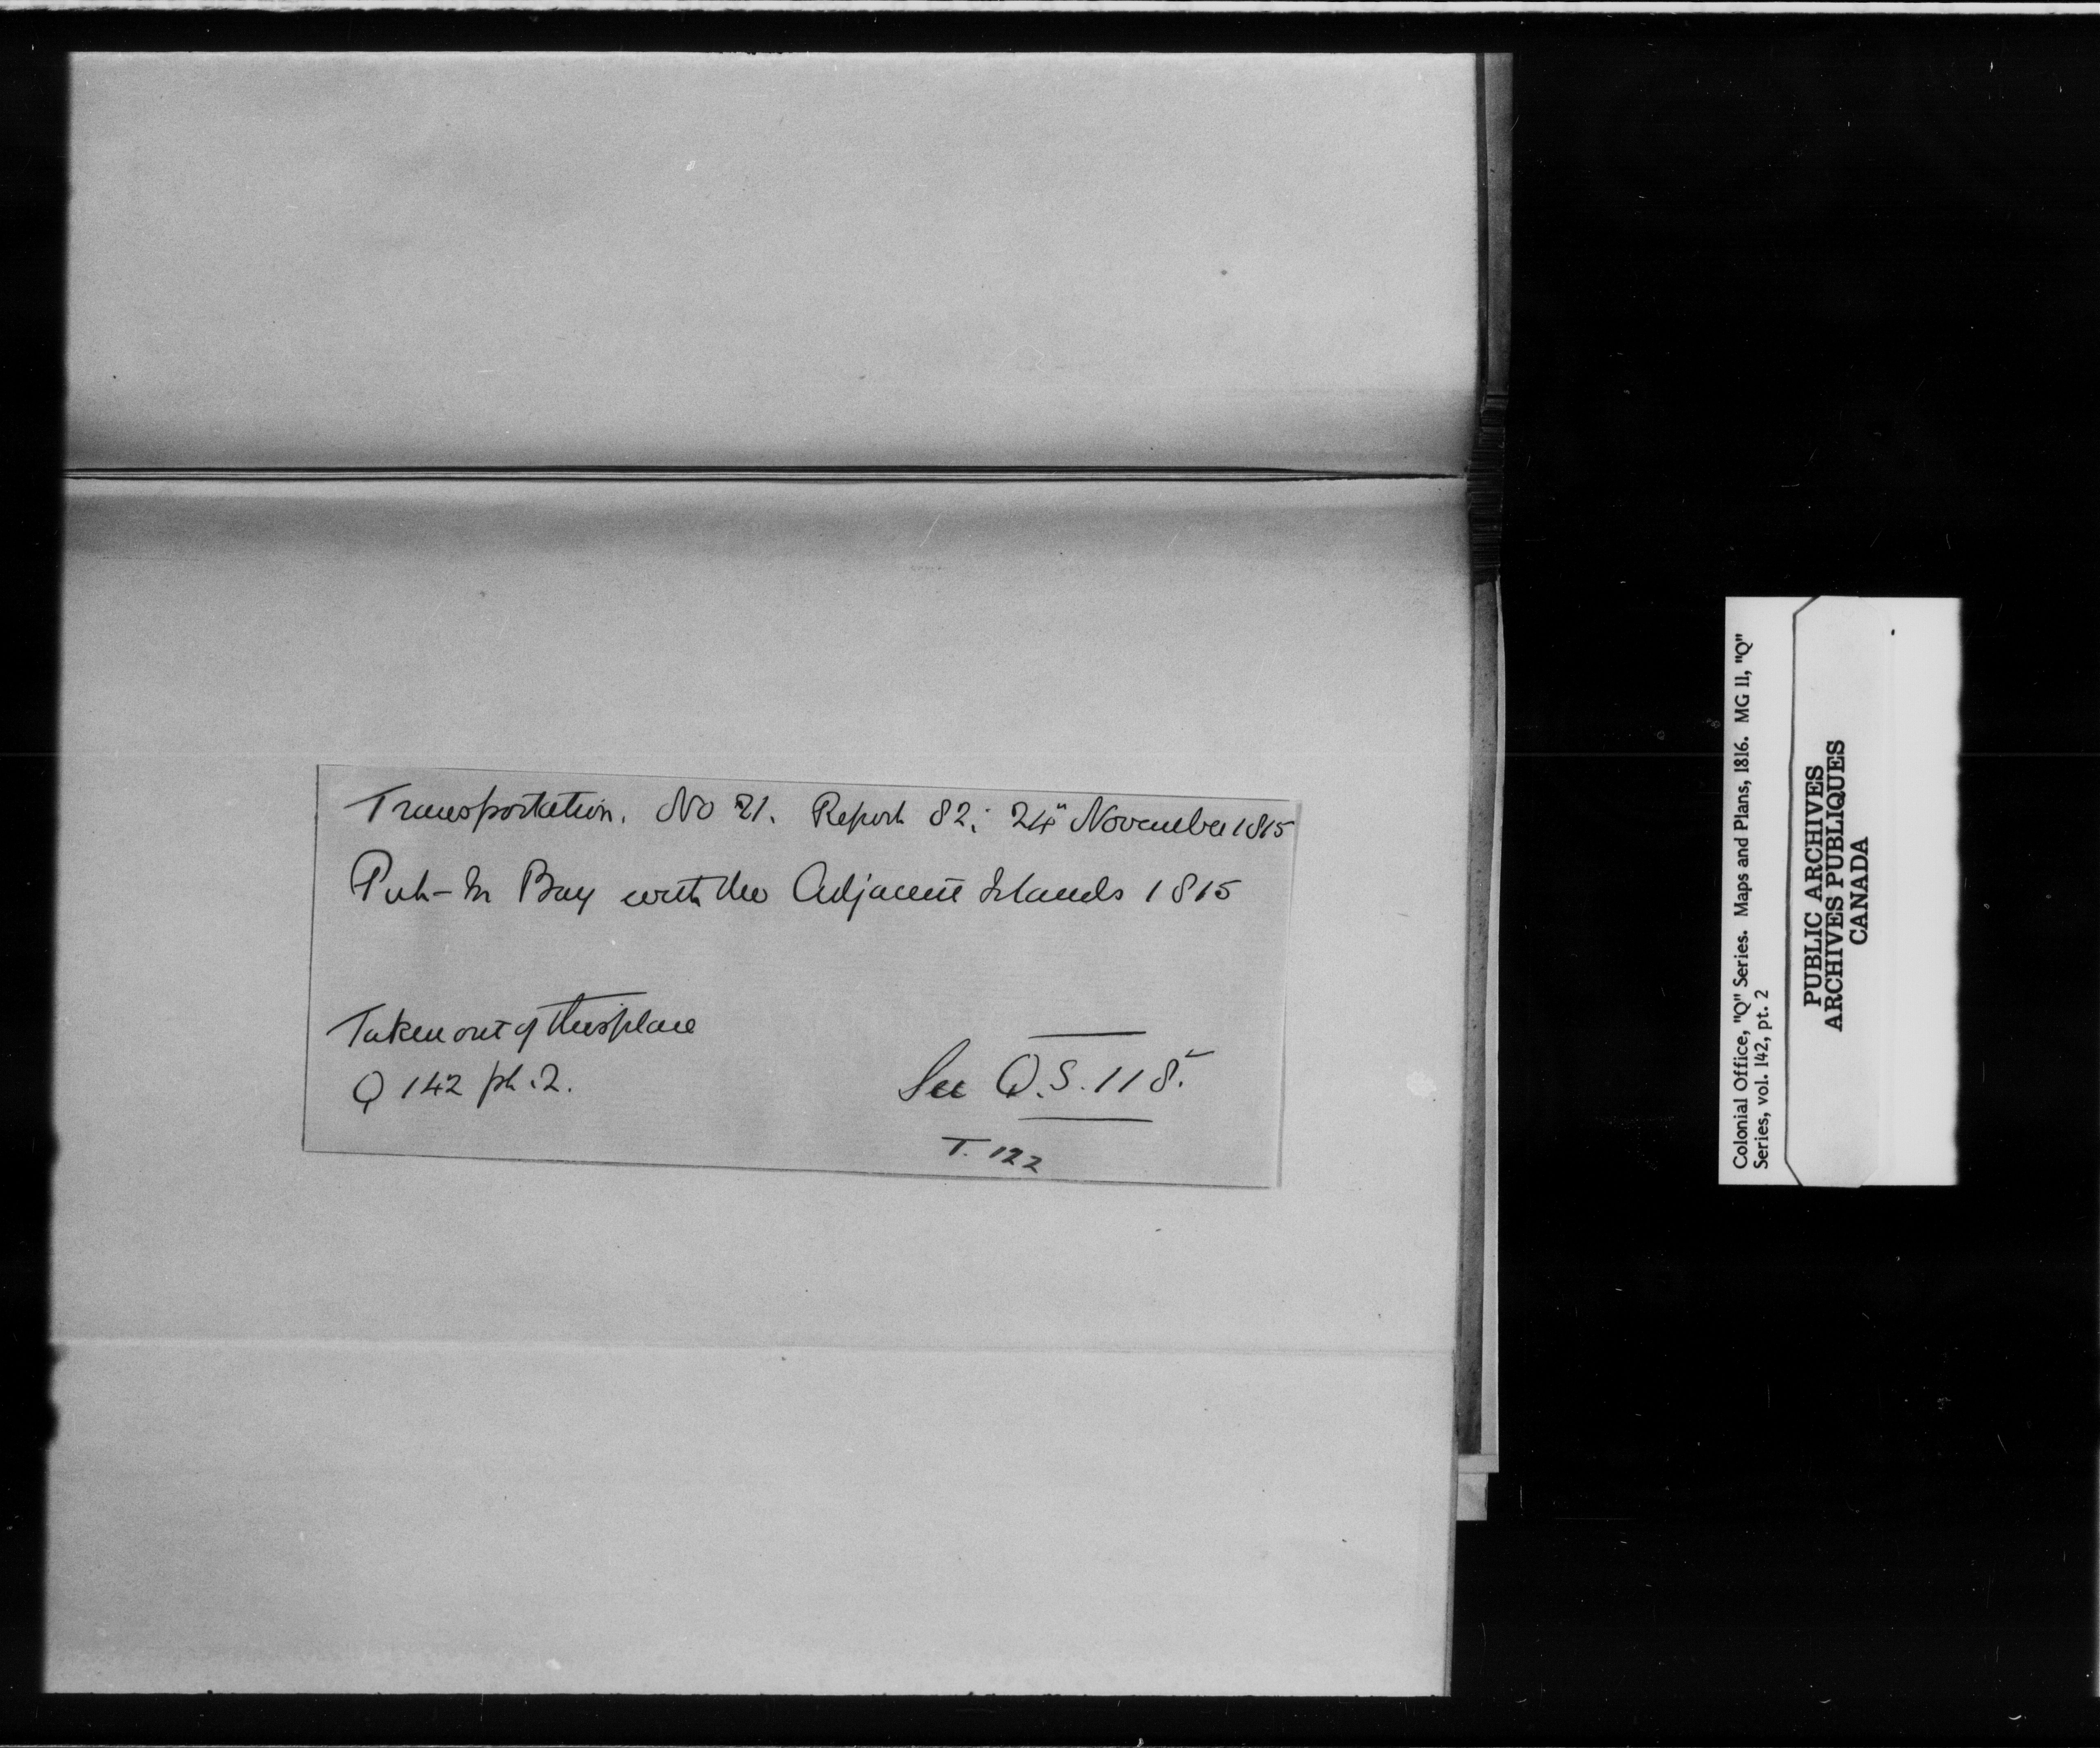 Transportation. No 21. Report 82: 24" November 1815
Put-In Bay with the Adjacent Islands 1815
Taken out of this place
Q 142 pt. 2.
See Q.S. 118.
T. 122
Colonial Office, "Q" Series. Maps and Plans, 1816. MG 11, "Q"
Series, vol. 142, pt. 2
PUBLIC ARCHIVES
ARCHIVES PUBLIQUES
CANADA